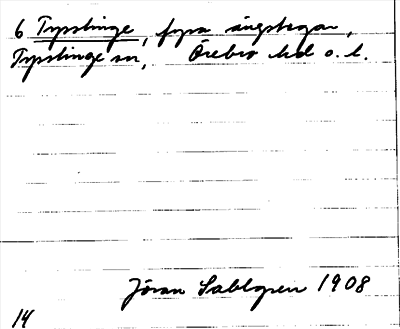 6 Tysslinge, fyra ängstegar,
Tysslinge sn, Örebro hd o. l.
Jöran Sahlgren 1908
14